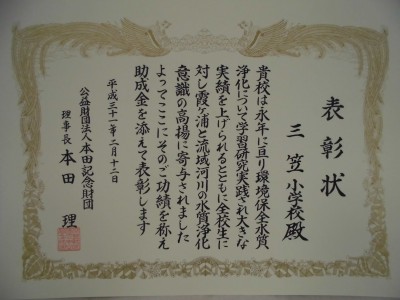 表彰状
三笠小学校殿
貴校は永年に亘り環境保全水質
浄化について学習研究実践され大きな
実績を上げられるとともに全校生に
対し霞ヶ浦と流域河川の水質浄化
意識の高揚に寄与されました
よってここにそのご功績を称え
助成金を添えて表彰します
平成三十一年二月十二日
公益財団法人本田記念財団
理事長 本田 理